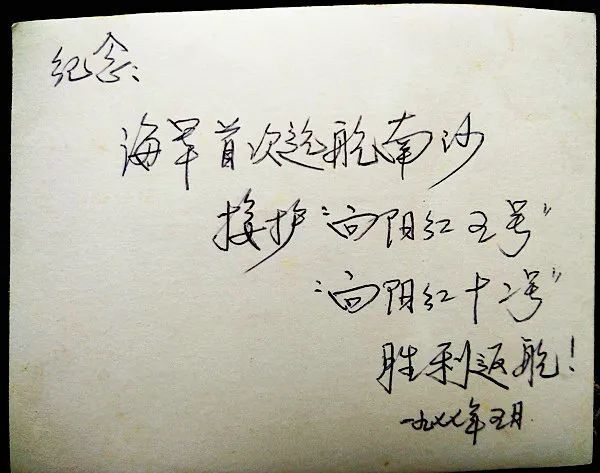 纪念:
海军首次巡航南沙
接护“向阳红五号”
“向阳红十二号”
胜利返航!
一九七七年五月